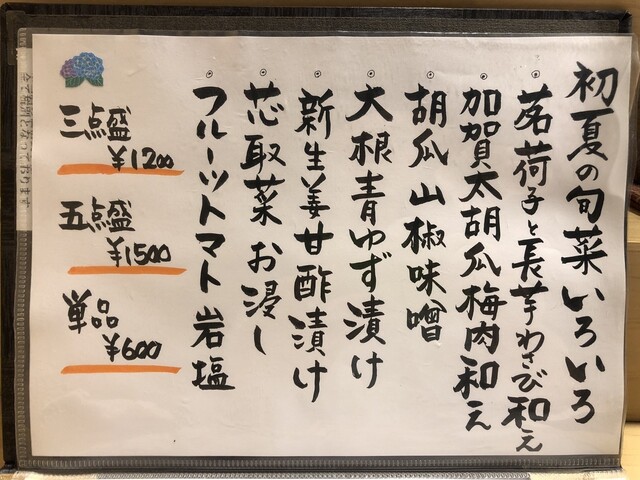 初夏の旬菜いろいろ
茗荷子と長芋わさび和え
加賀太胡瓜梅肉和え
胡瓜山椒味噌
大根青ゆず漬け
新生姜甘酢漬け
芯取菜お浸し
フルーツトマト岩塩
三点盛
¥1200
五点盛
¥1500
単品
¥600